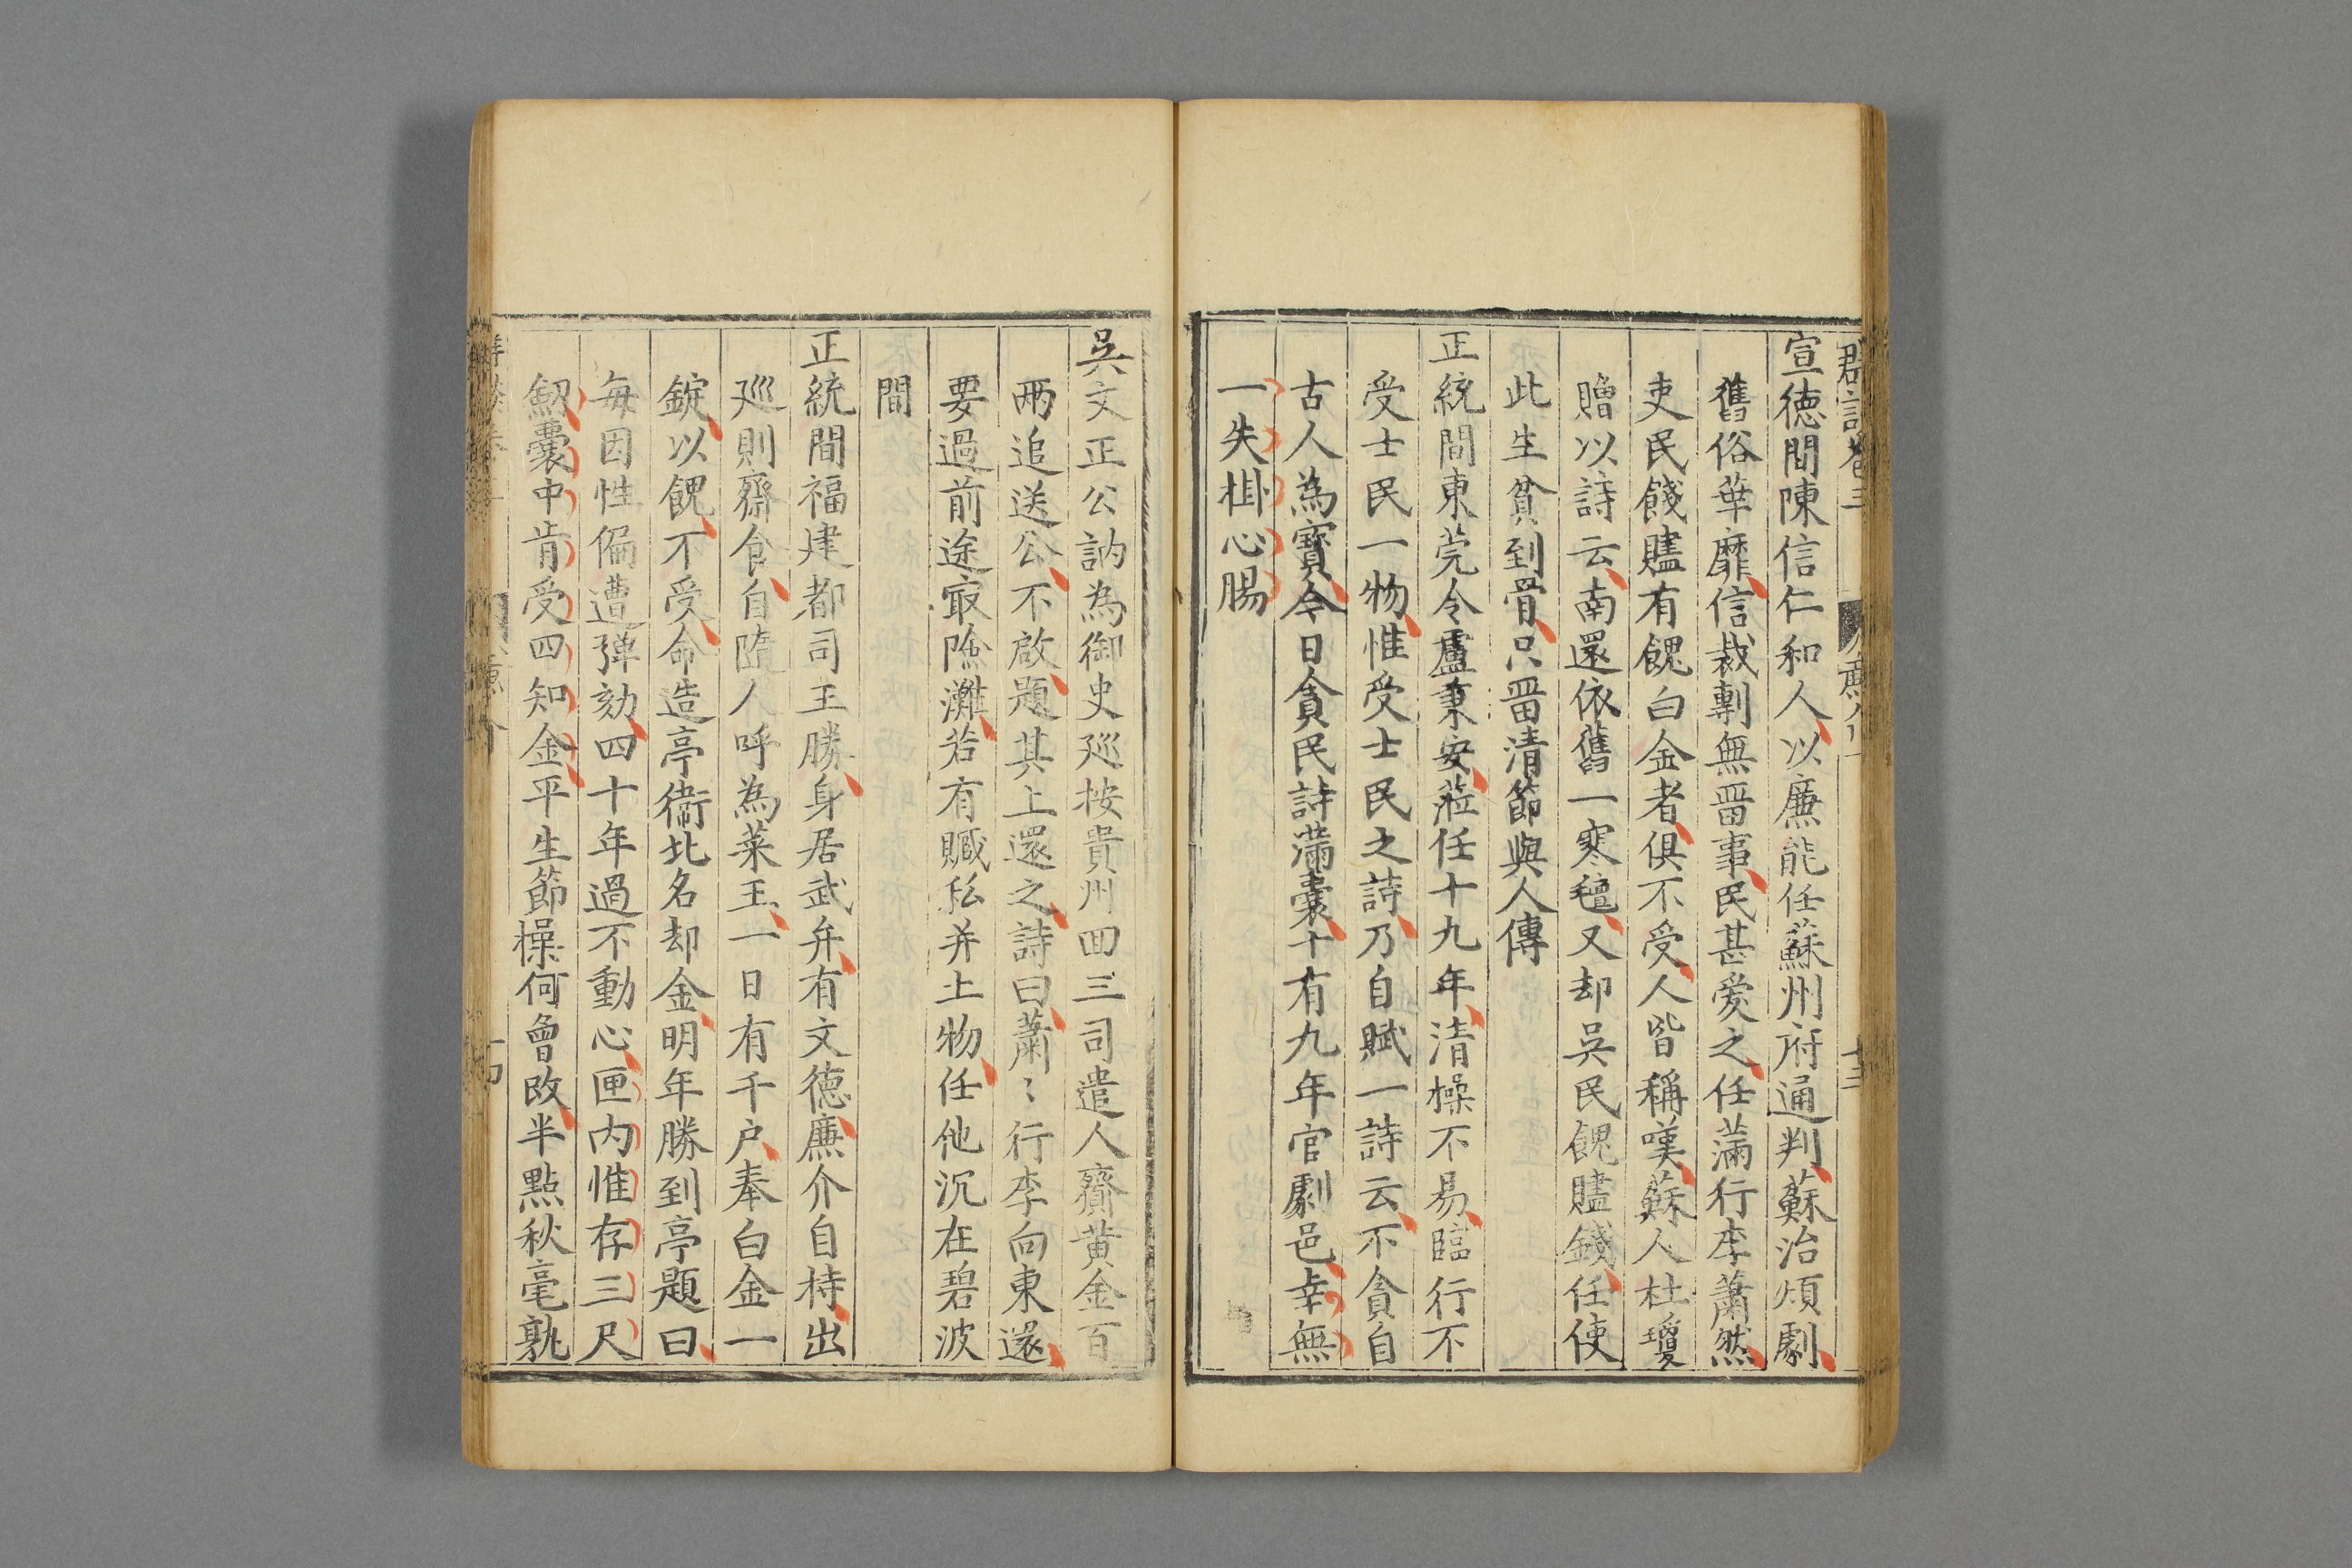 宣德間陳信仁和人以廉能任蘇州府通判蘇治煩劇
舊俗華靡信裁剸無畱事民甚愛之任滿行李蕭然
吏民餞贐有餽白金者俱不受人皆稱嘆蘇人杜瓊
贈以詩云南還依舊一寒氊又却吳民餽贐錢任使
此生貧到骨只畱清節與人傳
正統間東莞令盧秉安蒞任十九年清操不易臨行不
受士民一物惟受士民之詩乃自賦一詩云不貪自
古人為寳今日貪民詩滿囊十有九年官劇邑幸無
一失掛心膓
吳文正公訥為御史廵按貴州回三司遣人齎黄金百
兩追送公不啟題其上還之詩曰蕭〻行李向東還
要過前途㝡險灘若有贓私并土物任他沉在碧波
間
正統間福建都司王勝身居武弁有文德廉介自持出
廵則齋食自隨人呼為菜王一日有千户奉白金一
錠以餽不受命造亭衞北名却金明年勝到亭題曰
毎因性偏遭弹劾四十年過不動心匣内惟存三尺
劔囊中肯受四知金平生節操何曾改半點秋毫孰